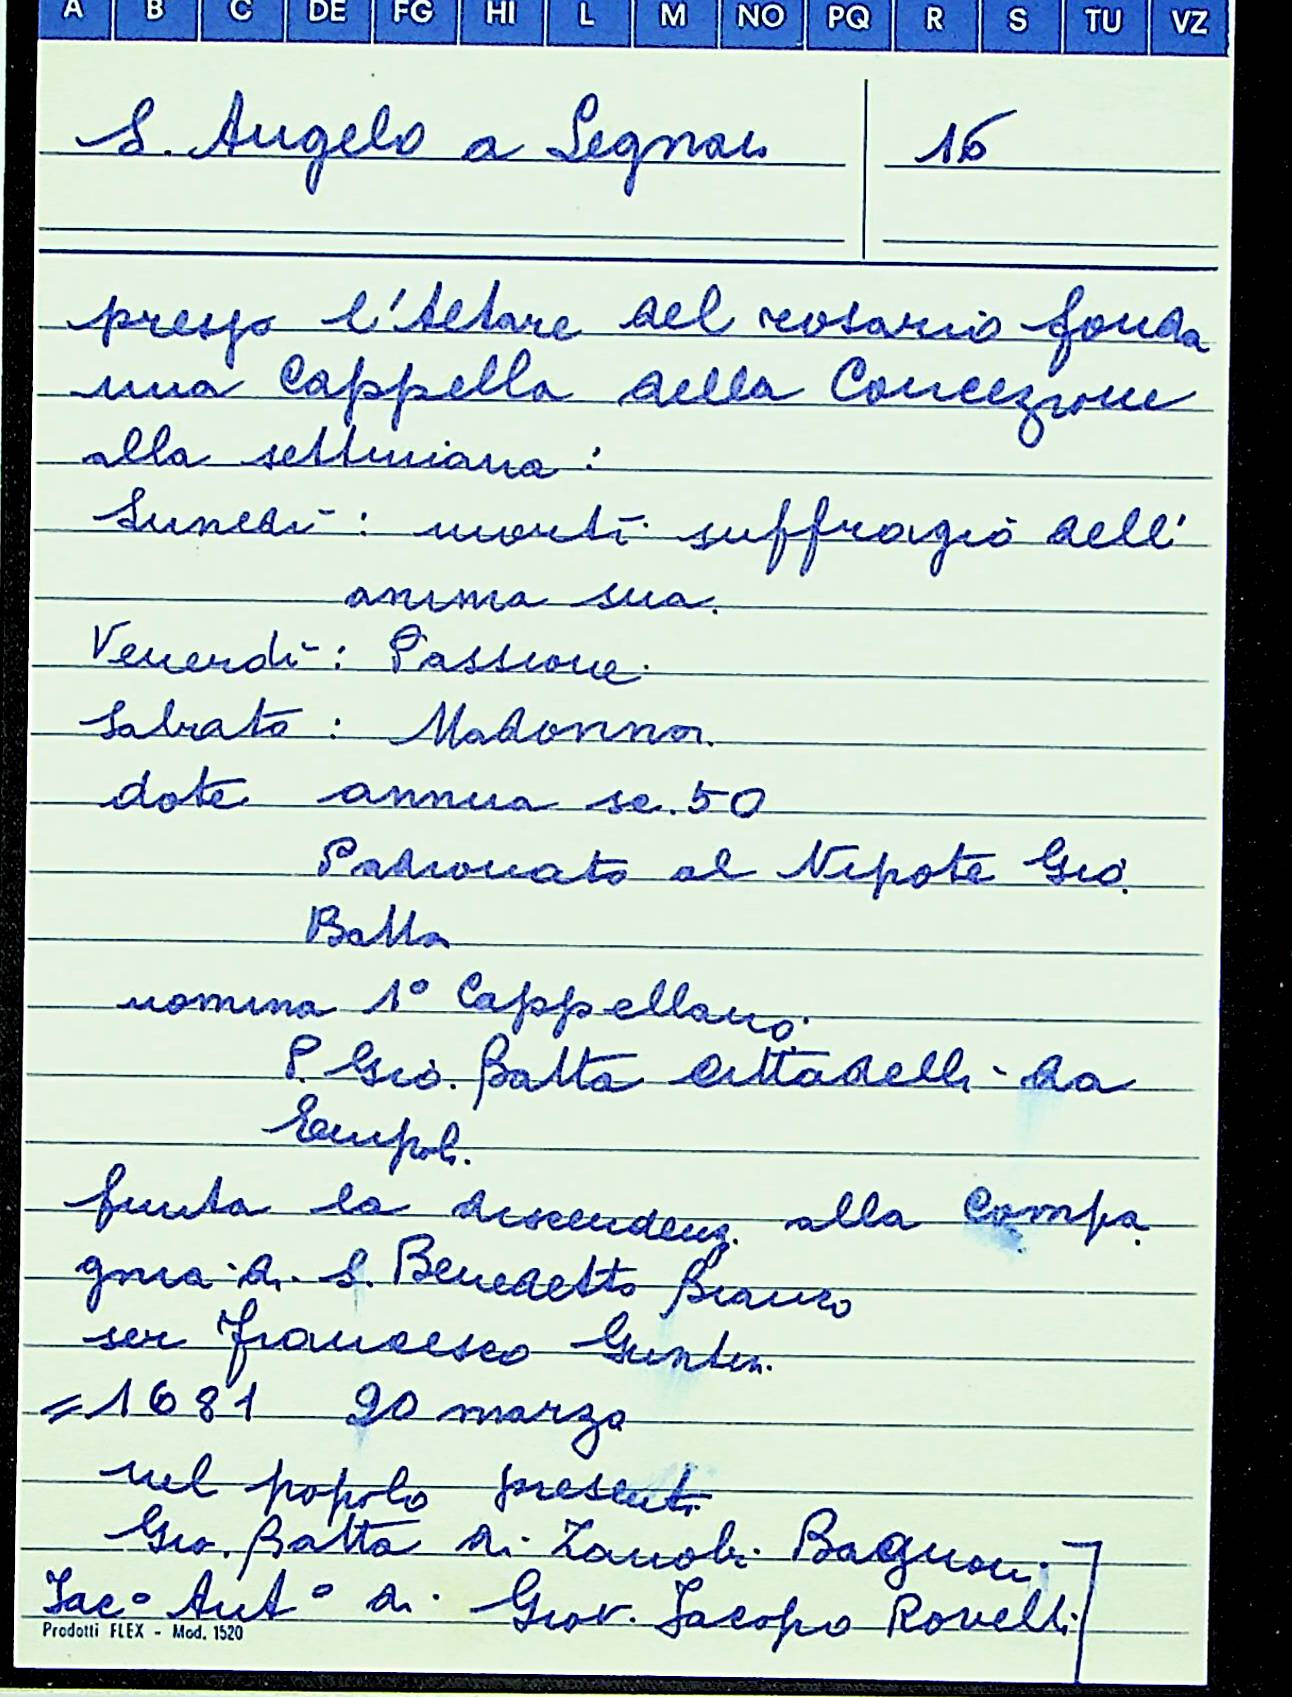 A B C DE FG HI L M NO PQ R S TU VZ
S. Angelo a Legnaia 16
presso l'Altare del rosario fonda
una Cappella della Concezione
alla settimana:
Lunedì: morti suffragio dell'
anima sua.
Venerdì: Passione.
Sabato: Madonna.
dote annua sc. 50
Padronato al Nipote Gio.
Batta
nomina 1° Cappellano:
P. Gio. Batta Cittadelli da
Empoli.
finita la discendenz. alla Compa
gnia di S. Benedetto Bianco
ser Francesco Giuntin.
= 1681 20 marzo
nel popolo presenti
Gio. Batta di Zanobi Bagnoni
Jac° Ant° di Giov. Jacopo Rovelli
Prodotti FLEX - Mod. 1520